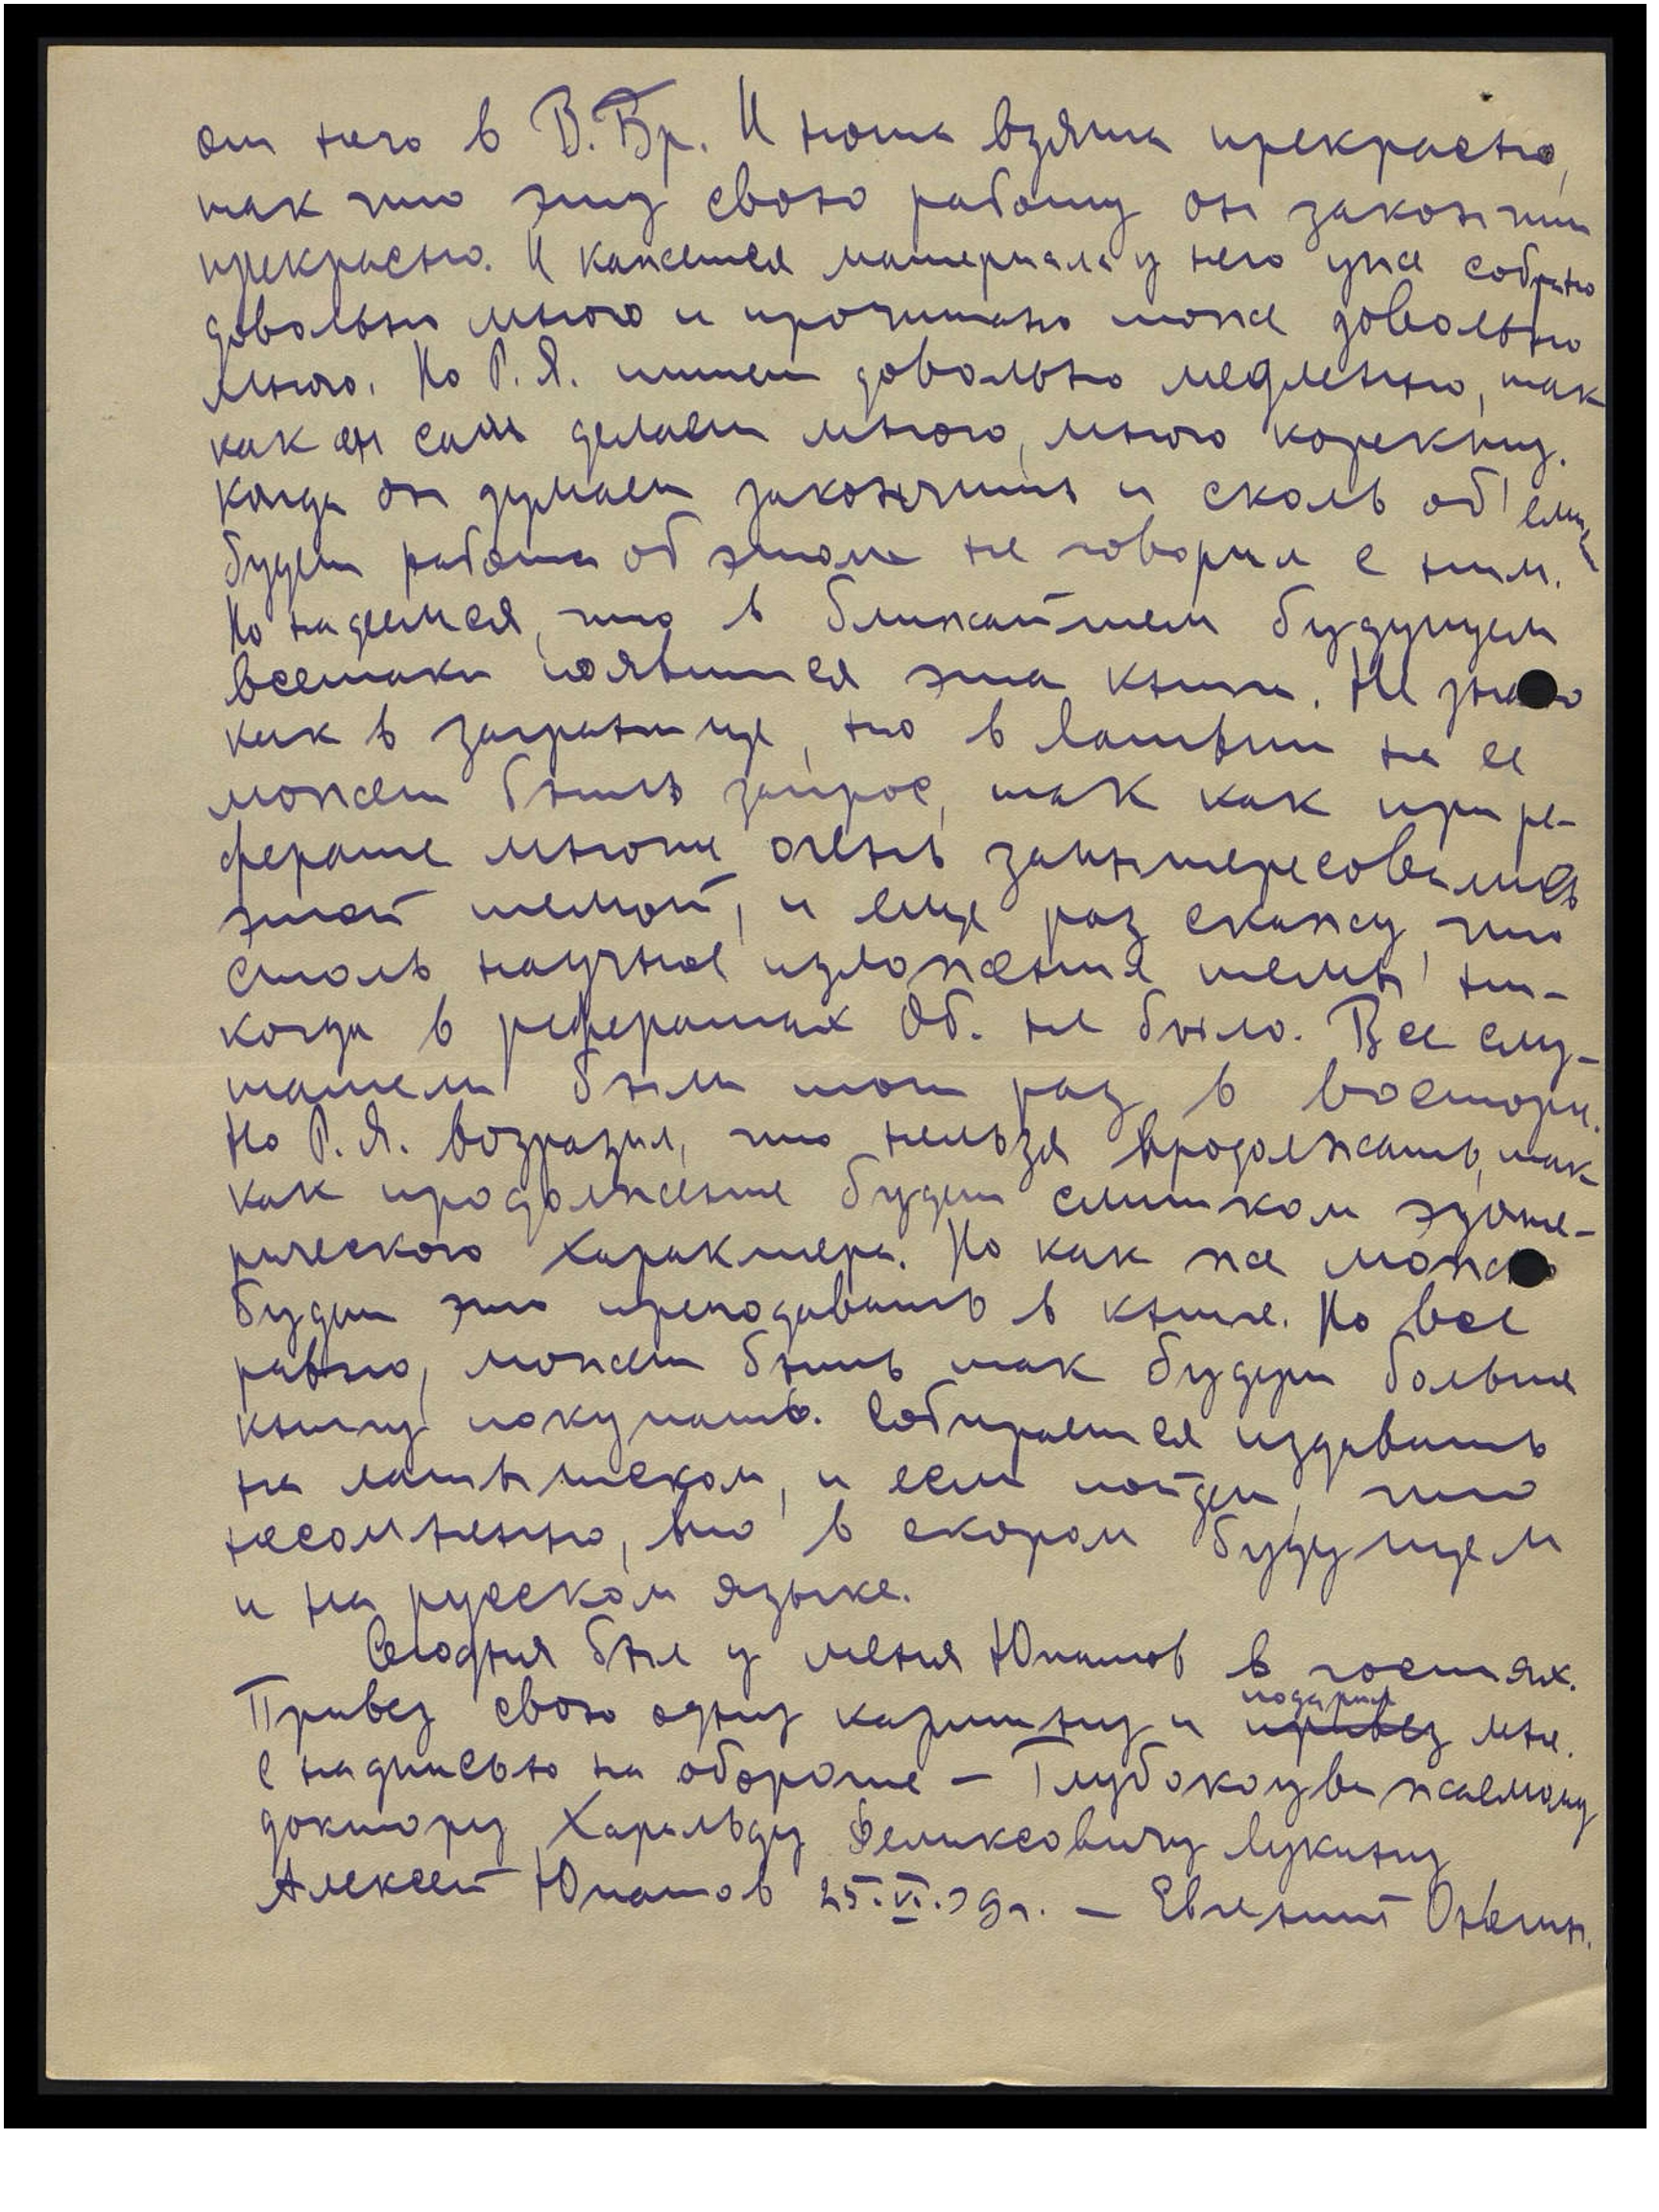 от него в В.Бр. И нота взята прекрасно,
так что эту свою работу он закончит
прекрасно. И кажется материала у него уже собрано
довольно много и прочитано тоже довольно
много. Но Р.Я. пишет довольно медленно, так
как он сам делает много, много коректуз.
Когда он думает закончить и сколь об'емист
будет работа об этом не говорил с ним.
Но надеемся, что в ближайшем будущем
всетаки появится эта книга. Не знаю
как в загранице, но в Латвии на ее
может быть запрос, так как при ре-
ферате многие очень заинтересовались
этой темой, и еще раз скажу, что
столь научное изложения темы ни-
когда в рефератах Об. не было. Все слу-
шатели были тот раз в восторге.
Но Р.Я. возразил, что нельзя продолжать, так
как продолжение будет слишком эзоте-
рического характера. Но как же можно
будет это преподавать в книге. Но все
равно, может быть так будут больше
книгу покупать. Собирается издавать
на латышском, и если пойдет, что
несомненно, то в скором будущем
и на русском языке.
Сегодня был у меня Юпатов в гостях.
Привез свою одну картину и привез подарил мне.
с надписью на обороте – Глубокоуважаемому
доктору Харальду Феликсовичу Лукину
Алексей Юпатов 25.VI.39г. – Евгений Онегин.